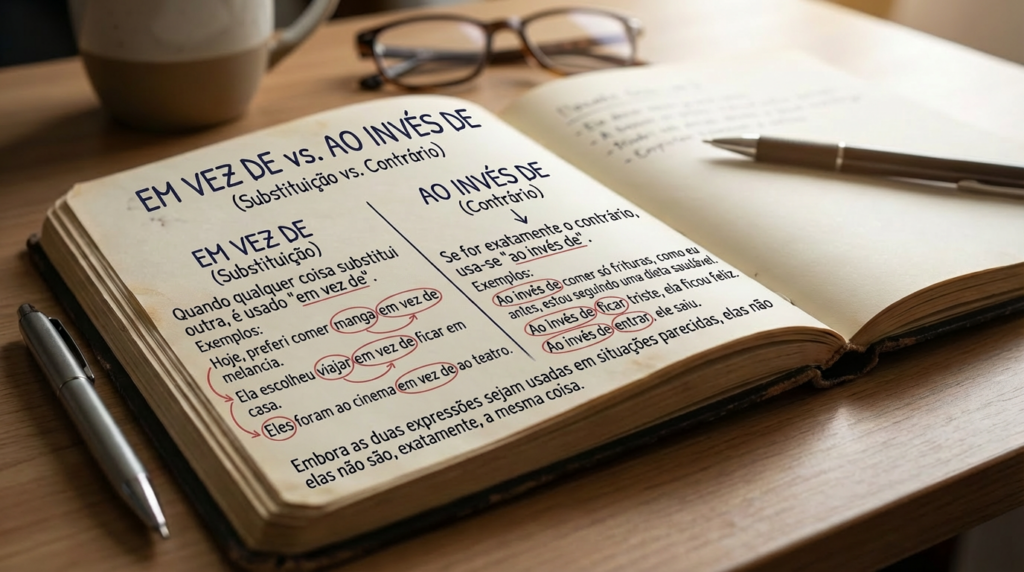 EM VEZ DE vs. AO INVÉS DE
(Substituição vs. Contrário)
EM VEZ DE
(Substituição)
Quando qualquer coisa substitui
outra, é usado "em vez de".
Exemplos:
Hoje, preferi comer manga em vez de
melancia.
Ela escolheu viajar em vez de ficar em
casa.
Eles foram ao cinema em vez de ao teatro.
AO INVÉS DE
(Contrário)
Se for exatamente o contrário,
usa-se "ao invés de".
Exemplos:
Ao invés de comer só frituras, como eu
antes, estou seguindo uma dieta saudável.
Ao invés de ficar triste, ela ficou feliz.
Ao invés de entrar, ele saiu.
Embora as duas expressões sejam usadas em situações parecidas, elas não
elas não são, exatamente, a mesma coisa.